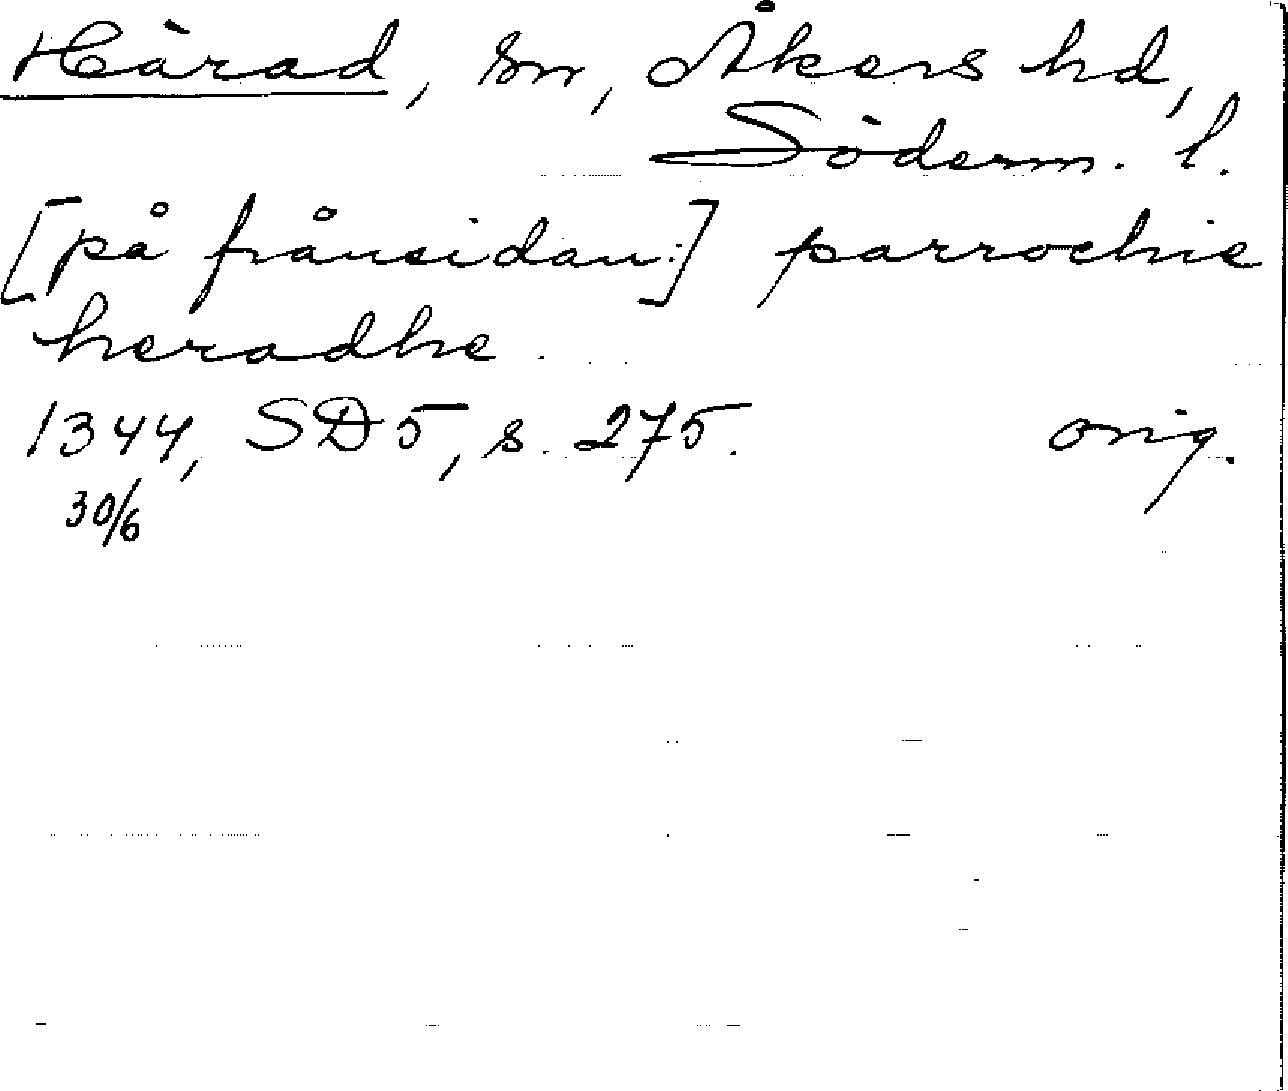 Härad, sn, Åkers hd,
Söderm. l.
[på frånsidan:] parrochie
heradhe.
1344, SD 5, s. 275. orig.
30/6